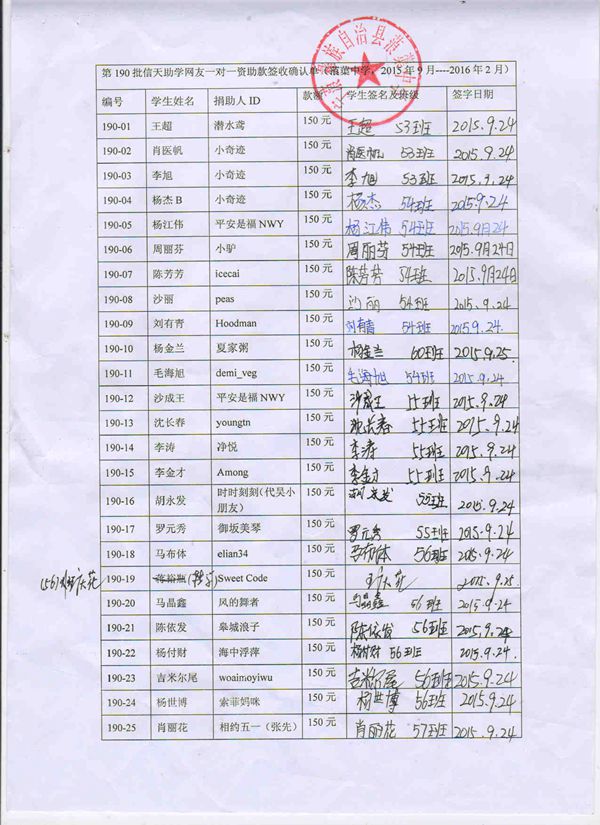 族自治县菠
第 190 批信天助学网友一对一资助款签收确认单（菠菜中学，2015 年 9 月----2016 年 2 月）
编号 学生姓名 捐助人 ID 款额 学生签名及班级 签字日期
190-01 王超 潜水鸢 150 元 王超 53班 2015.9.24
190-02 肖医帆 小奇迹 150 元 肖医帆 53班 2015.9.24
190-03 李旭 小奇迹 150 元 李旭 53班 2015.9.24
190-04 杨杰 B 小奇迹 150 元 杨杰 54班 2015.9.24
190-05 杨江伟 平安是福 NWY 150 元 杨江伟 54班 2015.9月24
190-06 周丽芬 小驴 150 元 周丽芬 54班 2015.9月24日
190-07 陈芳芳 icecai 150 元 陈芳芳 54班 2015.9月24日
190-08 沙丽 peas 150 元 沙丽 54班 2015.9.24
190-09 刘有青 Hoodman 150 元 刘有青 54班 2015.9.24.
190-10 杨金兰 夏家粥 150 元 杨金兰 60班 2015.9.25.
190-11 毛海旭 demi_veg 150 元 毛海旭 54班 2015.9.24
190-12 沙成王 平安是福 NWY 150 元 沙成王 55班 2015.9.24
190-13 沈长春 youngtn 150 元 沈长春 55班 2015.9.24
190-14 李涛 净悦 150 元 李涛 55班 2015.9.24
190-15 李金才 Among 150 元 李金才 55班 2015.9.24
190-16 胡永发 时时刻刻（代吴小朋友） 150 元 55班 2015.9.24
190-17 罗元秀 御坂美琴 150 元 罗元秀 55班 2015.9.24
190-18 马布体 elian34 150 元 马布体 56班 2015.9.24
190-19 蒋裕瓶 Sweet Code 150 元 2015.9.25
190-20 马晶鑫 风的舞者 150 元 马晶鑫 56班 2015.9.24
190-21 陈依发 皋城浪子 150 元 陈依发 56班 2015.9.24
190-22 杨付财 海中浮萍 150 元 杨付财 56班 2015.9.24.
190-23 吉米尔尾 woaimoyiwu 150 元 吉米尔尾 56班 2015.9.24
190-24 杨世博 索菲妈咪 150 元 杨世博 56班 2015.9.24
190-25 肖丽花 相约五一（张先） 150 元 肖丽花 57班 2015.9.24